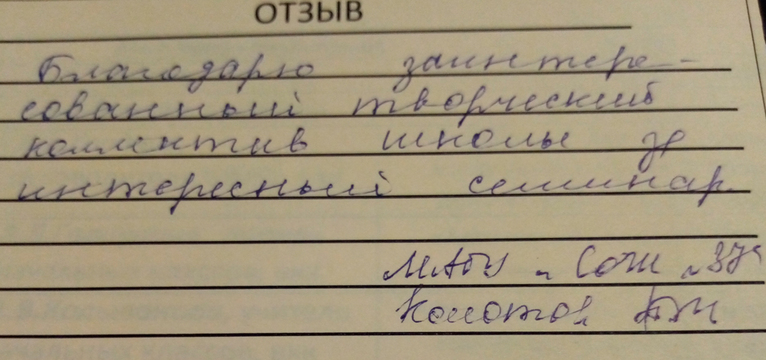 ОТЗЫВ
Благодарю заинтере-
сованный творческий
коллектив школы за
интересный семинар.
МАОУ "СОШ №37"